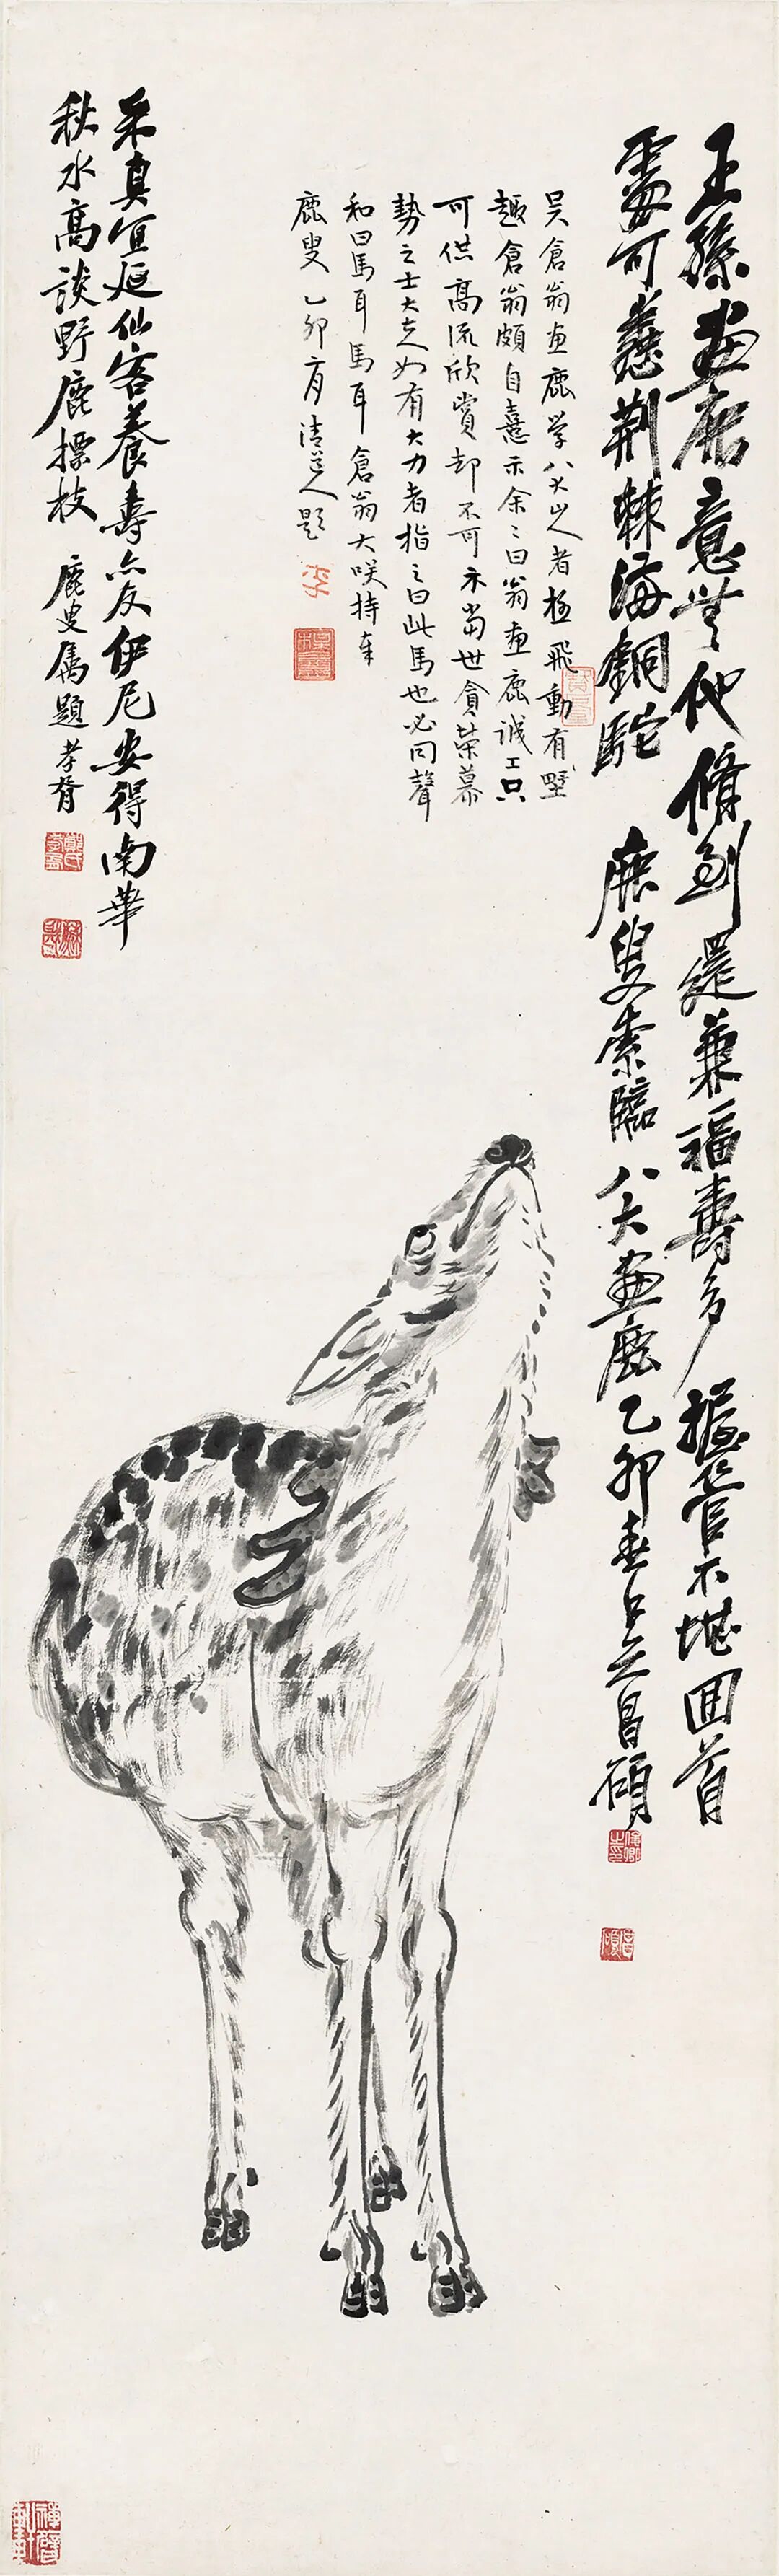 王孫畫鹿意無他脩到還兼福壽多握管不堪回首
處可憐荆棘海銅駝 鹿叟索臨八大畫鹿乙卯春吳昌碩
吴倉翁画鹿学八大山人者極飛動有墅
趣倉翁頗自憙示余〻曰翁画鹿誠工只
可供高流欣賞却不可示當世貪荣慕
勢之士大夫如有大力者指之曰此馬也必同聲
和曰馬耳馬耳倉翁大咲持奉
鹿叟 乙卯 清道人題
采真宜延仙客養壽亦友伊尼安得南華
秋水高談野鹿摽枝 鹿叟属題 孝胥